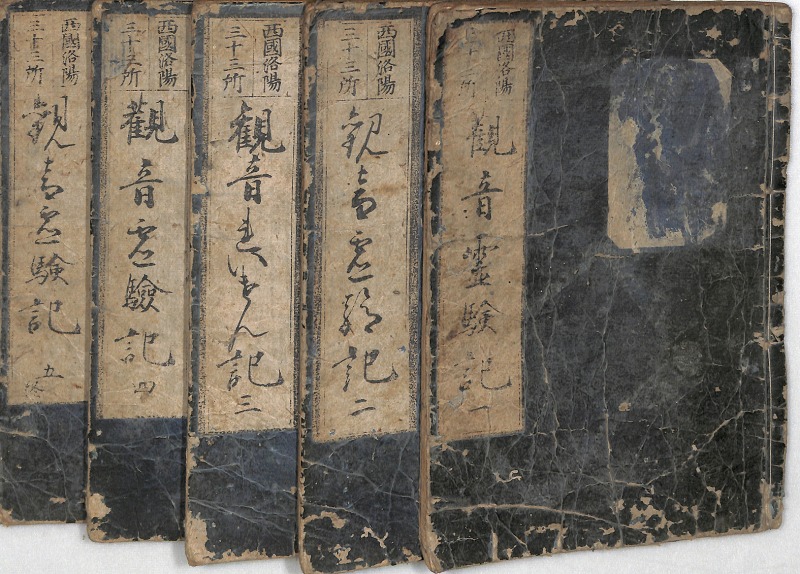 西國洛陽
三十三所
觀音靈驗記
一
西國洛陽
三十三所
観音霊験記
二
西國洛陽
三十三所
觀音れいけん記
三
西國洛陽
三十三所
觀音霊驗記
四
西國洛陽
三十三所
観音霊験記
五